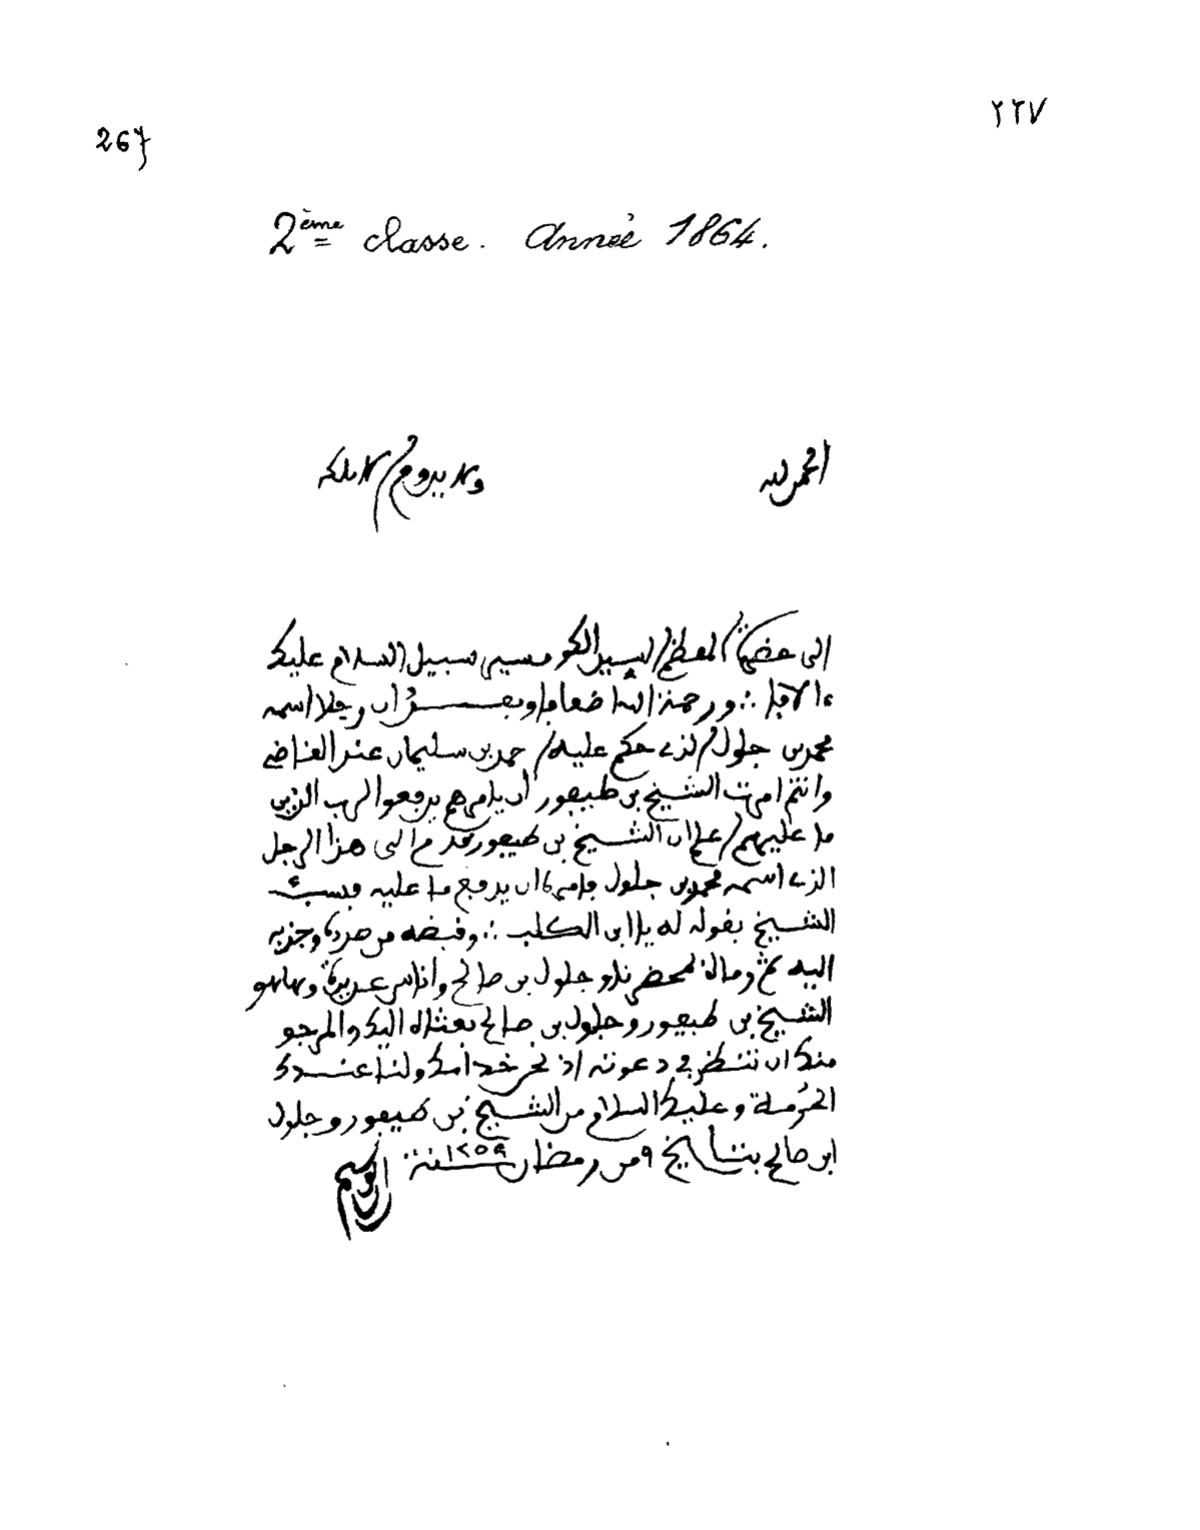 ٢٢٧
267
2ème classe. Année 1864.
الحمد لله ولا يدوم الا ملكه
الى حضرة المعظم السيد الكومسير سبيل السلام عليك
ورحمة الله وبعد ان رجلا اسمه
محمد بن جلول الذي حكم عليه احمد بن سليمان عند القاضي
وانتم امرت الشيخ بن طيفور ان يامرهم يدفعوا الذين
ما عليهم اعلم ان الشيخ بن طيفور قدم الى هذا الرجل
الذي اسمه محمد بن جلول فامره ان يدفع ما عليه فسب
الشيخ بقوله له يا ابن الكلب وقبضه من صدره وجذبه
اليه جلول بن صالح واناس عديدة وها هو
الشيخ بن طيفور وجلول بن صالح بعثناه اليك والمرجو
منك ان تنظر في دعوته اذ نحن خدامك ولنا عندك
الحرمة وعليك السلام من الشيخ بن طيفور وجلول
ابن صالح بتاريخ ٩ من رمضان سنة ١٢٥٩